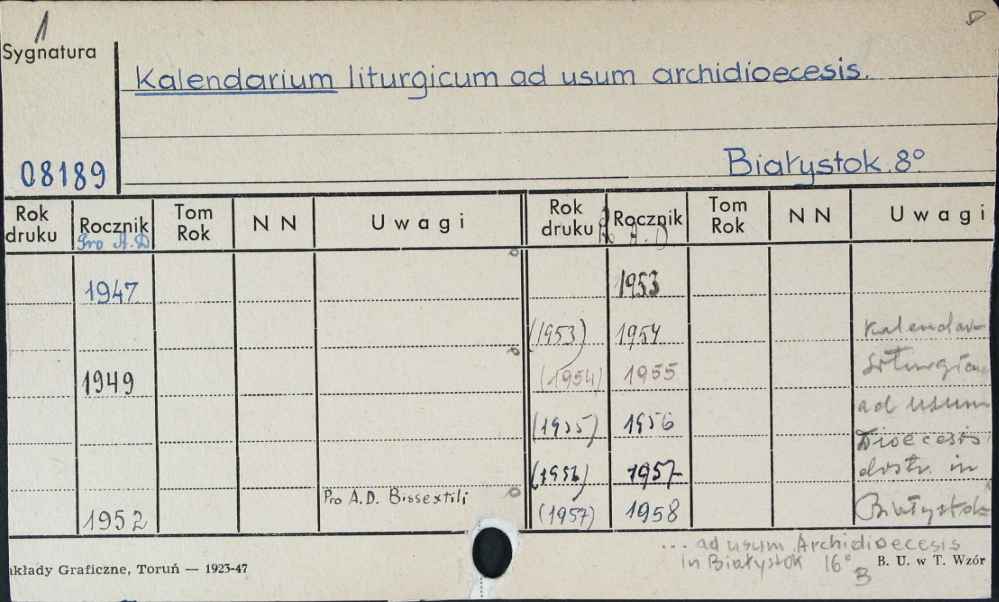 1
Sygnatura
Kalendarium liturgicum ad usum archidioecesis.
08189
Białystok. 8°
Rok druku | Rocznik | Tom Rok | N N | Uwagi | Rok druku | Rocznik | Tom Rok | N N | Uwagi
Pro A.D. | A.D.
1947 | 1953
(1953) 1954 Kalendar
1949 (1954) 1955
(1955) 1956 ad usum
Dioecesis
(1956) 1957 in
Pro A.D. Bissextili
1952 (1957) 1958
... ad usum Archidioecesis
in Białystok 16°
B
akłady Graficzne, Toruń — 1923-47
B. U. w T. Wzór